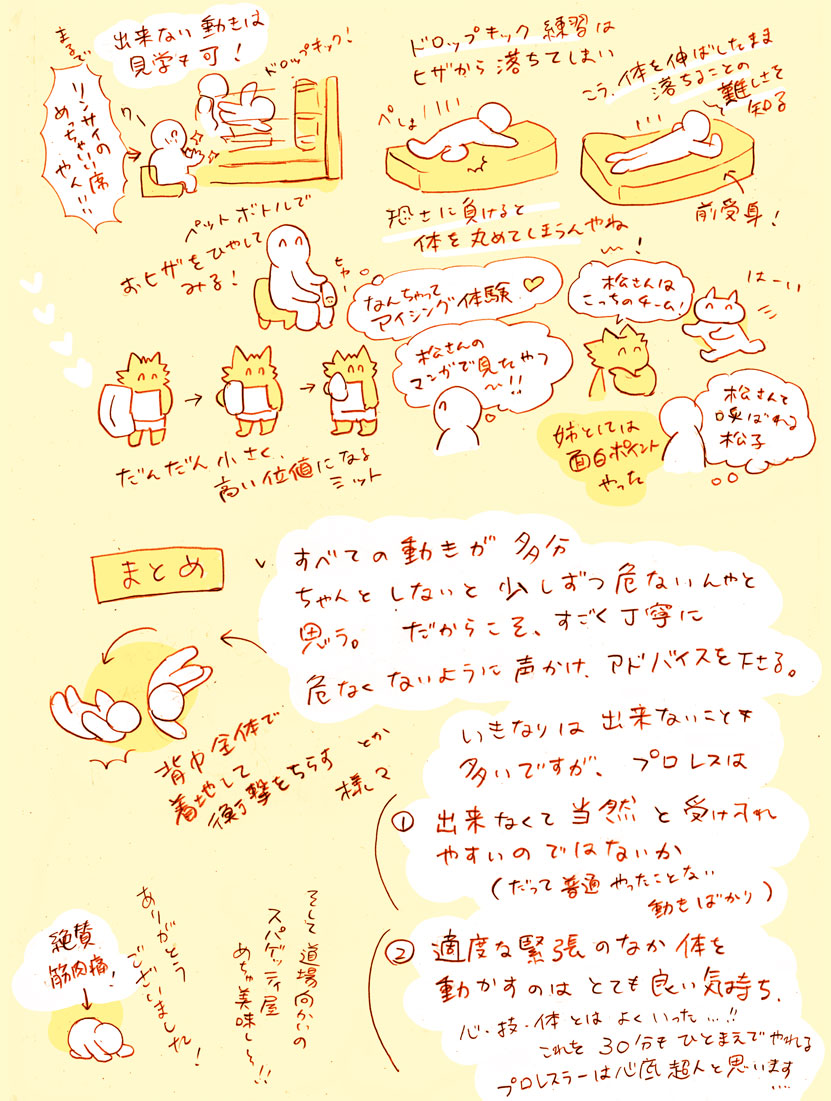 出来ない動きは
見学も可!
まるで
リンサイの
めっちゃいい席
やん!!!
ドロップキック!
ドロップキック練習は
ヒザから落ちてしまい
ペしょ
こう、体を伸ばしたまま
落ちることの
難しさを
知る
前受身!
恐さに負けると
体を丸めてしまうんやね
ペットボトルで
おヒザをひやして
みる!
なんちゃって
アイシング体験
松さんの
マンガで見たやつ
〜!!
松さんは
こっちのチーム!
〜!
はーい
松さんと
呼ばれる
松子
姉としては
面白ポイント
やった
だんだん小さく、
高い位値になる
ミット
まとめ
すべての動きが多分
ちゃんとしないと少しずつ危ないんやと
思う。だからこそ、すごく丁寧に
危なくないように声かけ、アドバイスを下さる。
背中全体で
着地して
衝撃をちらす
とか
様し〻
いきなりは出来ないことも
多いですが、プロレスは
① 出来なくて当然と受け入れ
やすいのではないか
(だって普通やったことない
動きばかり)
② 適度な緊張のなか体を
動かすのはとても良い気持ち.
心・技・体とはよくいった…!!
これを30分もひとまえでやれる
プロレスラーは心底超人と思います
....
そして道場向かいの
スパゲッティ屋
めちゃ美味し〜!!
ありがとう
ございました!
絶賛
筋肉痛!